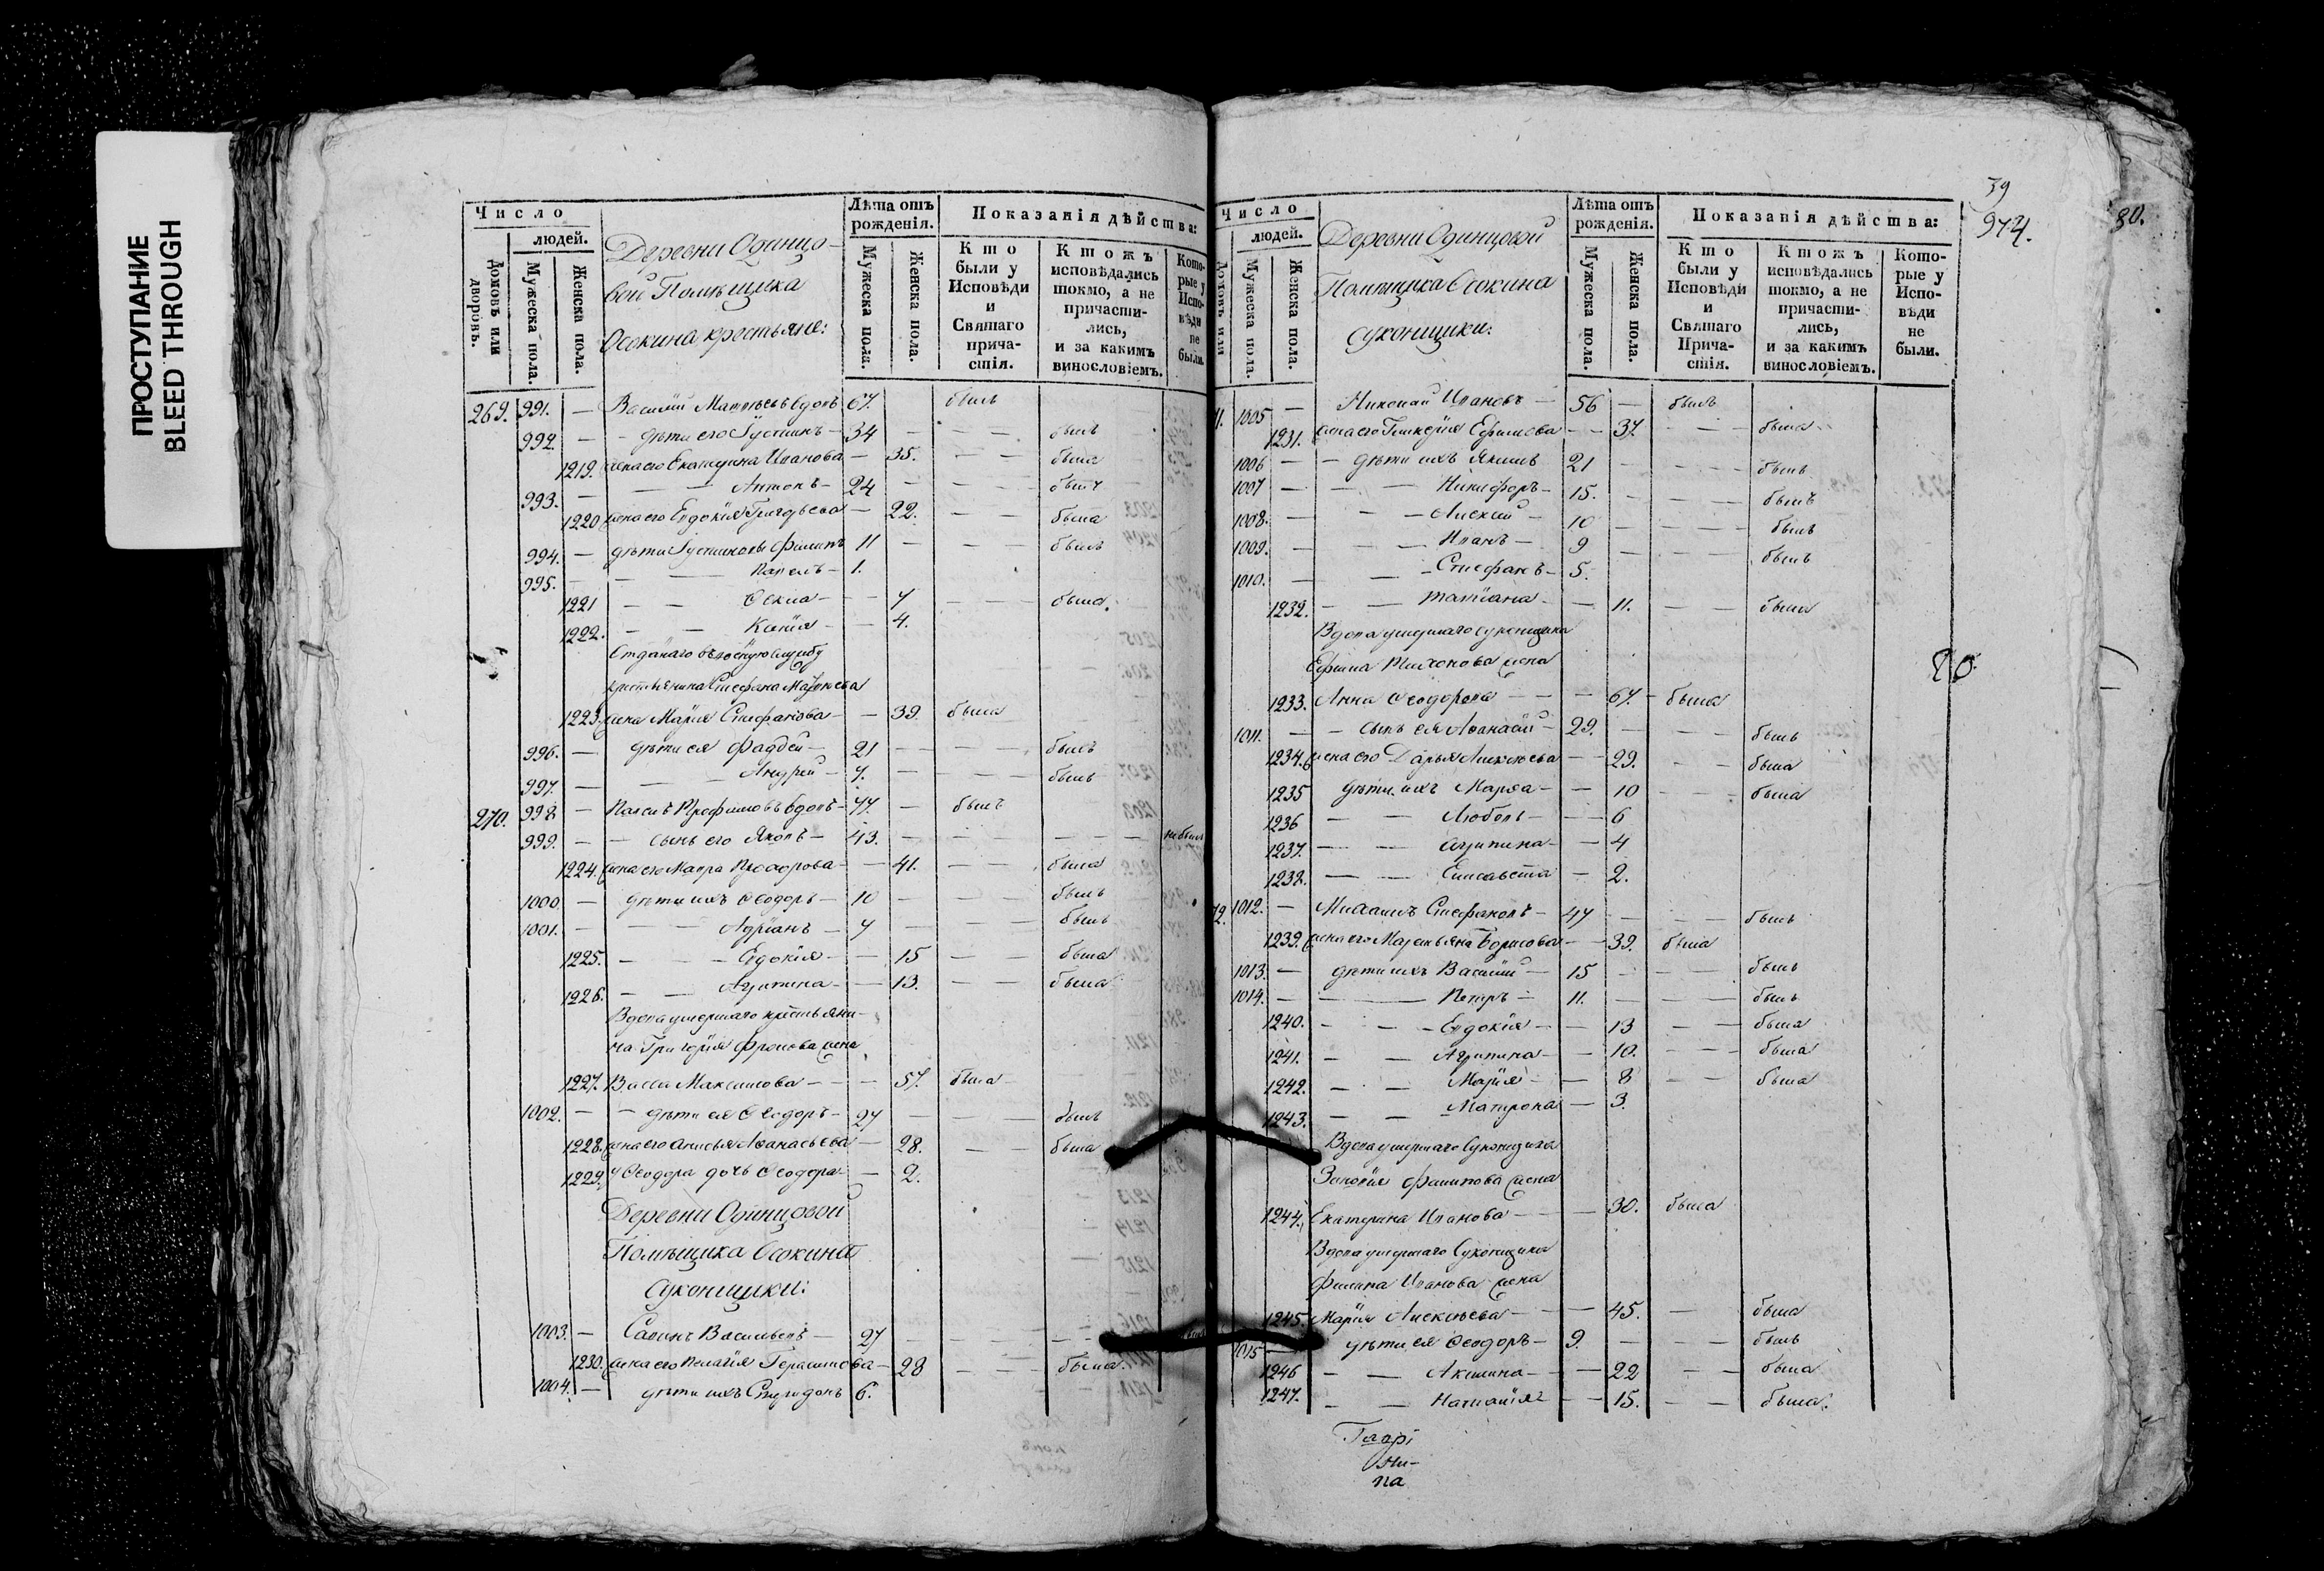 ПРОСТУПАНИЕ
BLEED THROUGH
Число
людей.
Домовъ или дворовъ.
Мужеска пола.
Женска пола.
Деревни Одинцо-
вой Помѣщика
Осокина крестьяне:
Лѣта отъ рожденія.
Мужеска пола.
Женска пола.
Показанія дѣйства:
Кто были у Исповѣди и Святаго прича-стія.
Ктожъ исповѣдались токмо, а не причасти-лись, и за какимъ винословіемъ.
Кото-рые у Испо-вѣди не были.
269. 991. — Василий Матвѣевъ вдовъ 67. былъ
992. — дѣти его Iустинъ — 34 — былъ
1219. жена его Екатерина Иванова — 35. была
993. — Антонъ — 24 — былъ
1220 жена его Евдокія Григорьева — 22. — была
994. — дѣти Iустиновы Филипъ 11 — былъ
995. — Павелъ — 1.
1221 — Ѳекла — 7 — была.
1222. — Ксенія — 4.
Отданаго въ военную службу
крестьянина Стефана Матвѣева
1223. жена Марія Стефанова — 39. была
996. — дѣти ея Фаддей — 21 — былъ
997. — Андрей — 7. — былъ
270. 998 — Павелъ Трофимовъ вдовъ — 77. — былъ
999. — сынъ его Яковъ — 43. — не былъ
1224. жена его Мавра Прохорова — 41. — была
1000 — дѣти ихъ Ѳеодоръ — 10 — былъ
1001. — Адріанъ — 7 — былъ
1225. — Евдокія — 15 — была
1226. — Агрипина — 13. — была
Вдова умершаго крестьяни-
на Григорія Фролова жена
1227. Васса Максимова — 57. была
1002. — дѣти ея Ѳеодоръ — 27 — былъ
1228. жена его Анисья Аѳанасьева — 28. — была
1229. у Ѳеодора дочь Ѳеодора — 2.
Деревни Одинцовой
Помѣщика Осокина
суконщики:
1003. — Савинъ Васильевъ — 27 —
1230. жена его Пелагія Герасимова — 28 — была.
1004. — дѣти ихъ Спиридонъ 6.
39
974.
80.
Число
людей.
Домовъ или
Мужеска пола.
Женска пола.
Деревни Одинцовой
Помѣщика Осокина
суконщики:
Лѣта отъ рожденія.
Мужеска пола.
Женска пола.
Показанія дѣйства:
Кто были у Исповѣди и Святаго Прича-стія.
Ктожъ исповѣдались токмо, а не причасти-лись, и за какимъ винословіемъ.
Кото-рые у Испо-вѣди не были.
1. 1005 — Николай Ивановъ — 56 — былъ
1231. жена его Гликерія Ефимова — 37. — была
1006 — дѣти ихъ Якимъ 21 — былъ
1007 — Никифоръ — 15. — былъ
1008. — Алексій — 10 — былъ
1009. — Иванъ — 9 — былъ
1010. — Стефанъ — 5.
1232. — Татіана — 11. — была
Вдова умершаго суконщика
Ефима Тихонова жена
1233. Анна Ѳеодорова — 67. — была
1011. — сынъ ея Аѳанасій — 29. — былъ
1234. жена его Дарья Алексѣева — 29. — была
1235 дѣти ихъ Марѳа — 10 — была
1236 — Любовь — 6
1237. — Агрипина — 4
1232. — Елисавета — 2.
12. 1012. — Михаилъ Стефановъ — 47 — былъ
1239. жена его Маремьяна Борисова — 39. была
1013. — дѣти ихъ Василій — 15 — былъ
1014. — Петръ — 11. — былъ
1240. — Евдокія — 13 — была
1241. — Агрипина — 10. — была
1242. — Марія — 8 — была
1243. — Матрона — 3.
Вдова умершаго Суконщика
Зиновія Филипова жена
1244. Екатерина Иванова — 30. была
Вдова умершаго Суконщика
Филипа Иванова жена
1245. Марія Алексѣева — 45. — была
1015 — дѣти ея Ѳеодоръ — 9. — былъ
1246 — Акилина — 22 — была
1247. — Наталія — 15. — была.
80